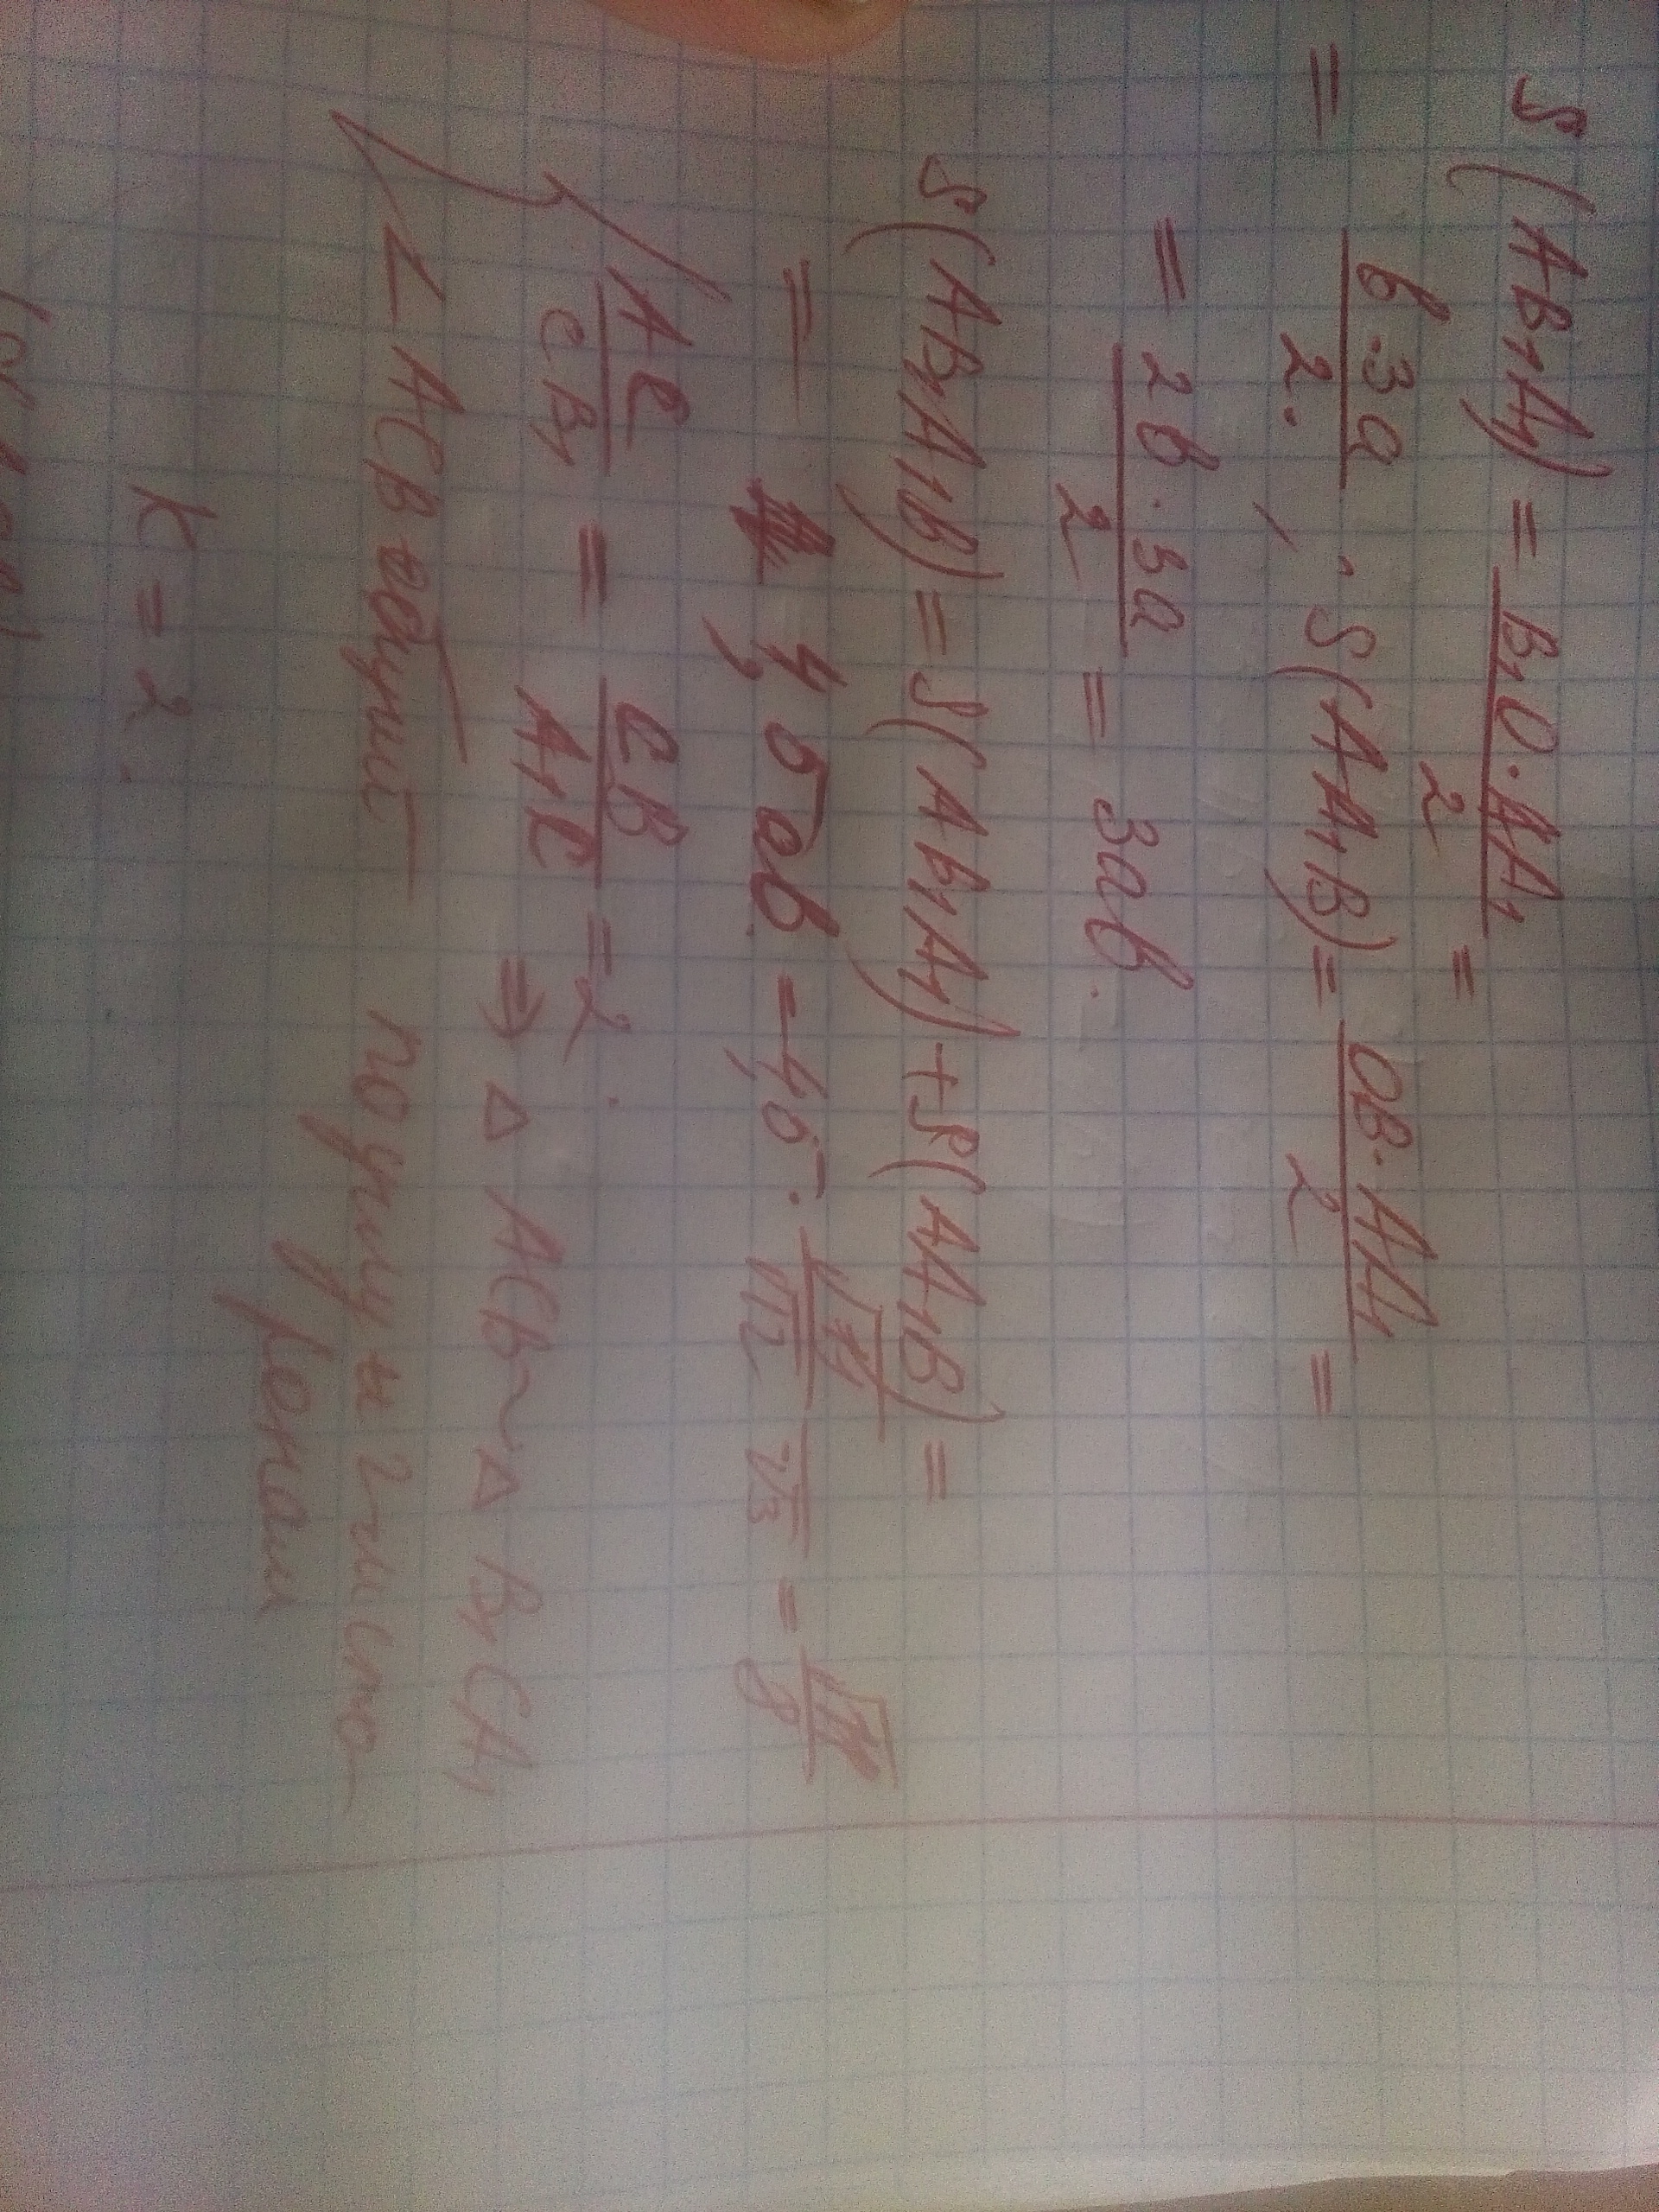 S(AB₁A₁) = B₁O·AA₁/2 =
= b·3a/2 ; S(AA₁B) = OB·AA₁/2 =
= 2b·3a/2 = 3ab.
S(AB₁A₁B) = S(AB₁A₁) + S(AA₁B) =
= 4,5ab = 4,5·
AC/CB₁ = CB/A₁C = 2.
⇒ △ACB ~ △B₁CA₁
∠ACB общий по углу и 2-м сто-
ронам
k = 2.